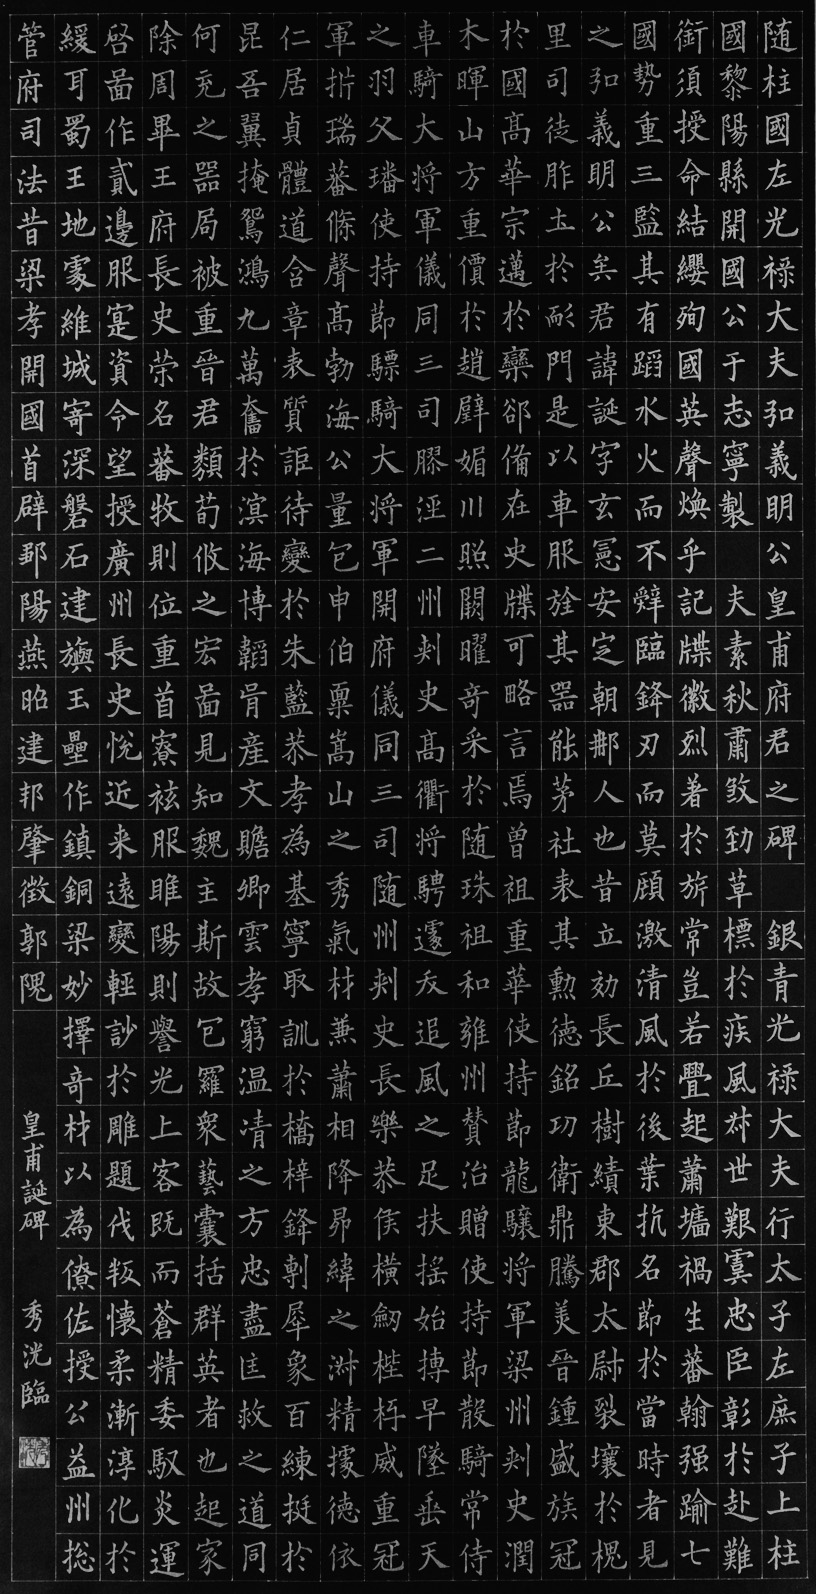 随柱國左光祿大夫弘義明公皇甫府君之碑 銀青光祿大夫行太子左庶子上柱
國黎陽縣開國公于志寧製 夫素秋肅煞勁草標於疾風叔世艱虞忠臣彰於赴難
銜須授命結纓殉國英聲煥乎記牒徽烈著於旂常豈若舋起蕭墻禍生蕃翰强踰七
國勢重三監其有蹈水火而不辭臨鋒刃而莫顧激清風於後葉抗名節於當時者見
之弘義明公矣君諱誕字玄憲安定朝那人也昔立効長丘樹績東郡太尉裂壤於槐
里司徒胙土於耏門是以車服旌其器能茅社表其勳德銘功衛鼎騰美晉鍾盛族冠
於國高華宗邁於欒郤備在史牒可略言焉曾祖重華使持節龍驤将軍梁州刺史潤
木暉山方重價於趙璧媚川照闕曜奇采於随珠祖和雍州賛治贈使持節散騎常侍
車騎大将軍儀同三司膠涇二州刺史高衢将騁遽夭追風之足扶摇始摶早墜垂天
之羽父璠使持節驃騎大将軍開府儀同三司随州刺史長樂恭侯橫劒梐枑威重冠
軍折瑞蕃條聲高勃海公量包申伯稟嵩山之秀氣材兼蕭相降昴緯之淑精據德依
仁居貞體道含章表質詎待變於朱藍恭孝為基寧取訓於橋梓鋒剸犀象百練挺於
昆吾翼掩鴛鴻九萬奮於溟海博韜胄産文贍卿雲孝窮温凊之方忠盡匡救之道同
何充之器局被重晉君類荀攸之宏啚見知魏主斯故包羅衆藝囊括群英者也起家
除周畢王府長史荣名蕃牧則位重首寮袨服睢陽則譽光上客既而蒼精委馭炎運
啓啚作貳邊服寔資令望授廣州長史悅近来遠變輕訬於雕題伐叛懷柔漸淳化於
緩耳蜀王地處維城寄深磐石建旟玉壘作鎮銅梁妙擇奇材以為僚佐授公益州総
管府司法昔梁孝開國首辟鄒陽燕昭建邦肇徵郭隗
皇甫誕碑 秀洸臨